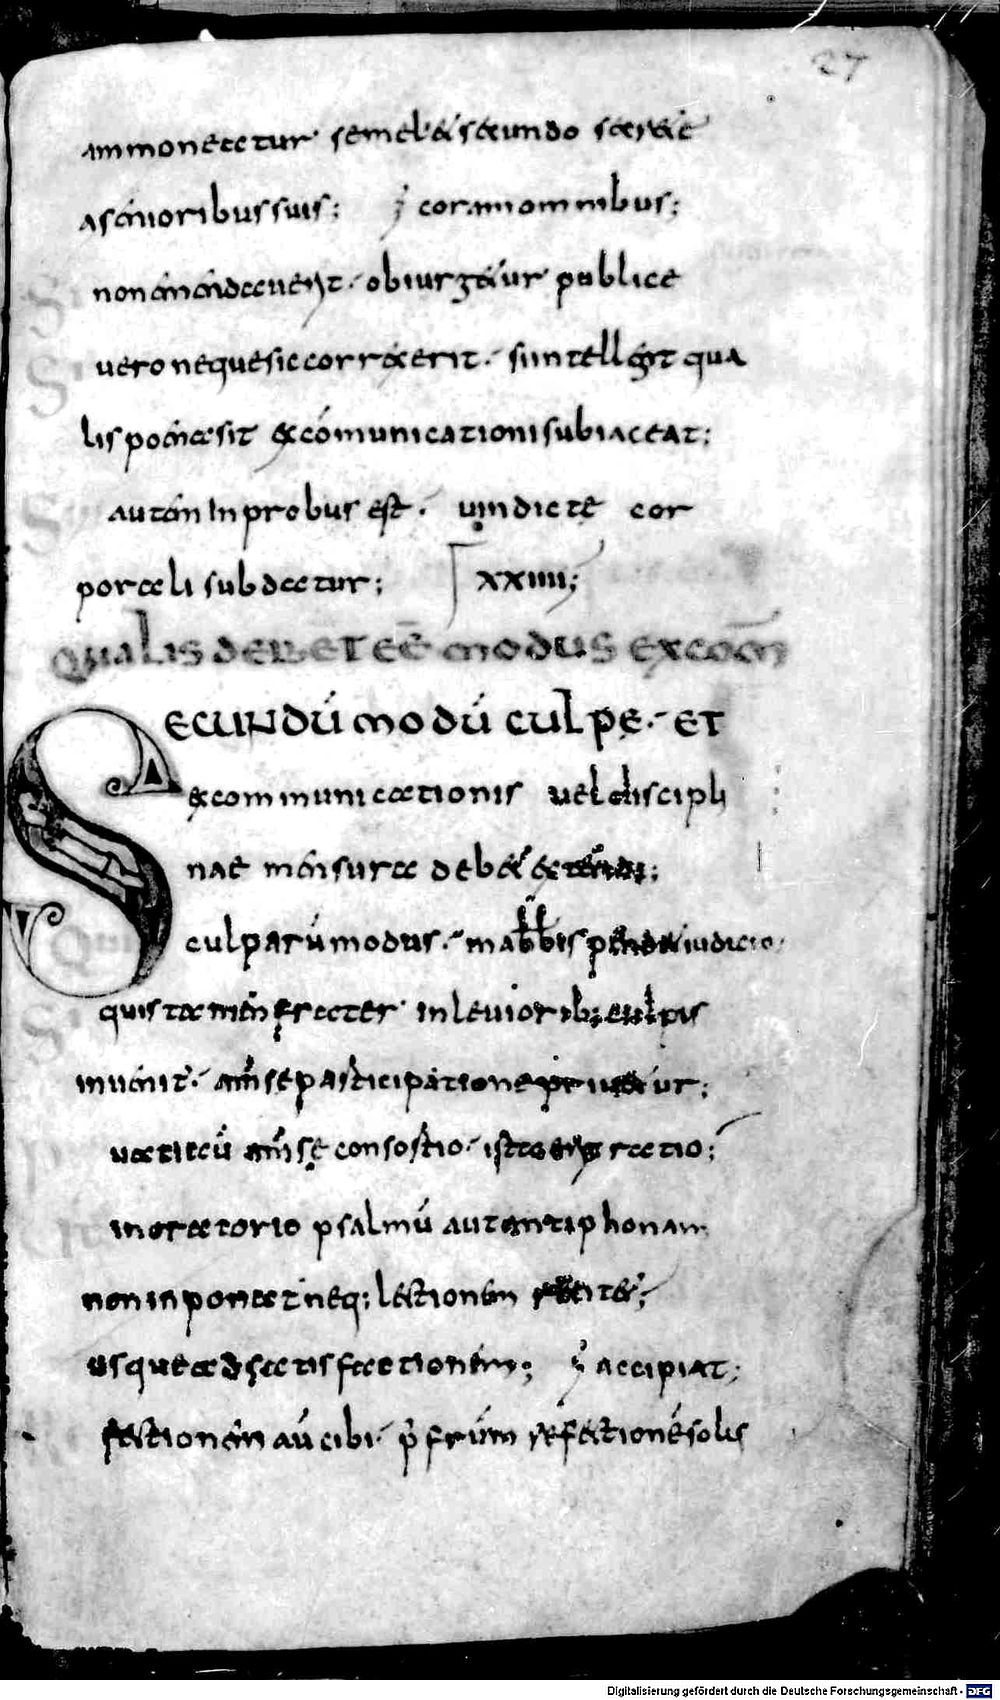 27
ammonetetur semel & secundo secrete
a senioribus suis; coram omnibus;
non emendaverit. obiurgetur publice
vero neque sic correxerit. si intellegit qua
lis poena sit excomunicationi subiaceat;
autem Inprobus est. vindicte cor
porali subdatur; XXIIII;
QUALIS DEBET EE MODUS EXCOM
SECUNDŪ MODŪ CULPE. ET
excommunicationis vel discipli
nae mensura debet extendi;
culparū modus. in abbis pendet iudicio.
quis tamen frater in levioribus culpis
invenit'. a mense participatione privetur;
vati cū a mense consortio. ista erit ratio;
in oratorio psalmū aut antiphonam
non inponat neq; lectionem recitet;
usque ad satisfactionem; accipiat;
fectionem aū cibi. p frūm refectionē solis
Digitalisierung gefördert durch die Deutsche Forschungsgemeinschaft - DFG